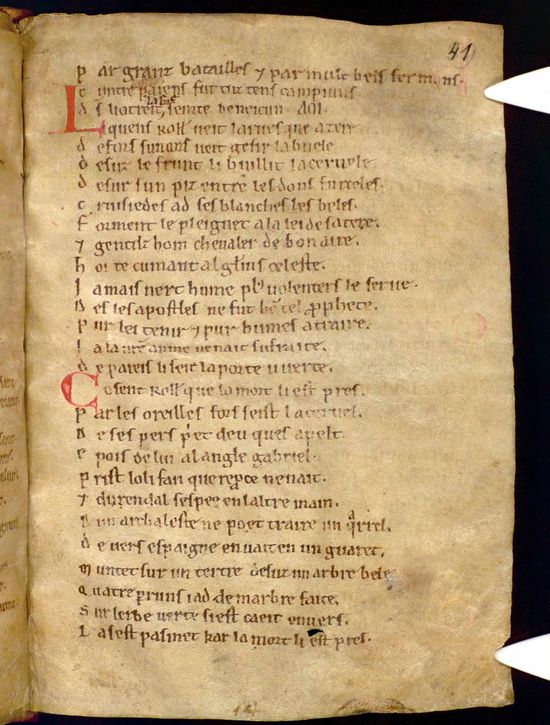 41
Par granz batailles 7 par mult bels sermons.
Cuntre paiens fut tuz tens campiuns
d s li otreit seinte beneiçun. AOI.
Li quens Roll' veit larcevesque a tere
defors sun cors veit gesir la buele
desuz le frunt li buillit la cervele.
desur sun piz entre les dous furceles.
cruisiedes ad ses blanches les beles.
forment le pleignet a la lei de sa tere.
7 gentilz hom chevaler de bon aire.
hoi te cumant al glius celeste.
Jamais nert hume plus volenters le serve.
Des les apostles ne fut hō tel prophete.
Pur lei tenir 7 pur humes atraire.
Ja la vre anme nen ait sufraite.
de pareis li seit la porte uverte.
Co sent Roll' que la mort li est pres.
Par les oreilles fors seist la cervel.
De ses pers priet deu ques apelt.
e pois de lui al angle gabriel.
Prist lolifan que reproce nen ait.
7 durendal sespee en laltre main.
Dun arcbaleste ne poet traire un qrrel.
devers espaigne en vait en un guaret.
Muntet sur un tertre desuz un arbre bele
Quatre pruns i ad de marbre faite.
Sur lerbe verte si est caeit envers.
La sest pasmet kar la mort li est pres.